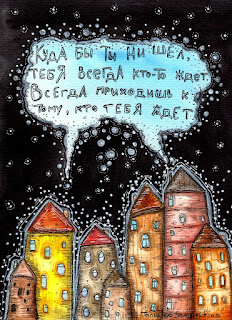 КУДА БЫ ТЫ НИ ШЁЛ,
ТЕБЯ ВСЕГДА КТО-ТО ЖДЕТ.
ВСЕГДА ПРИХОДИШЬ К
ТОМУ, КТО ТЕБЯ ЖДЕТ